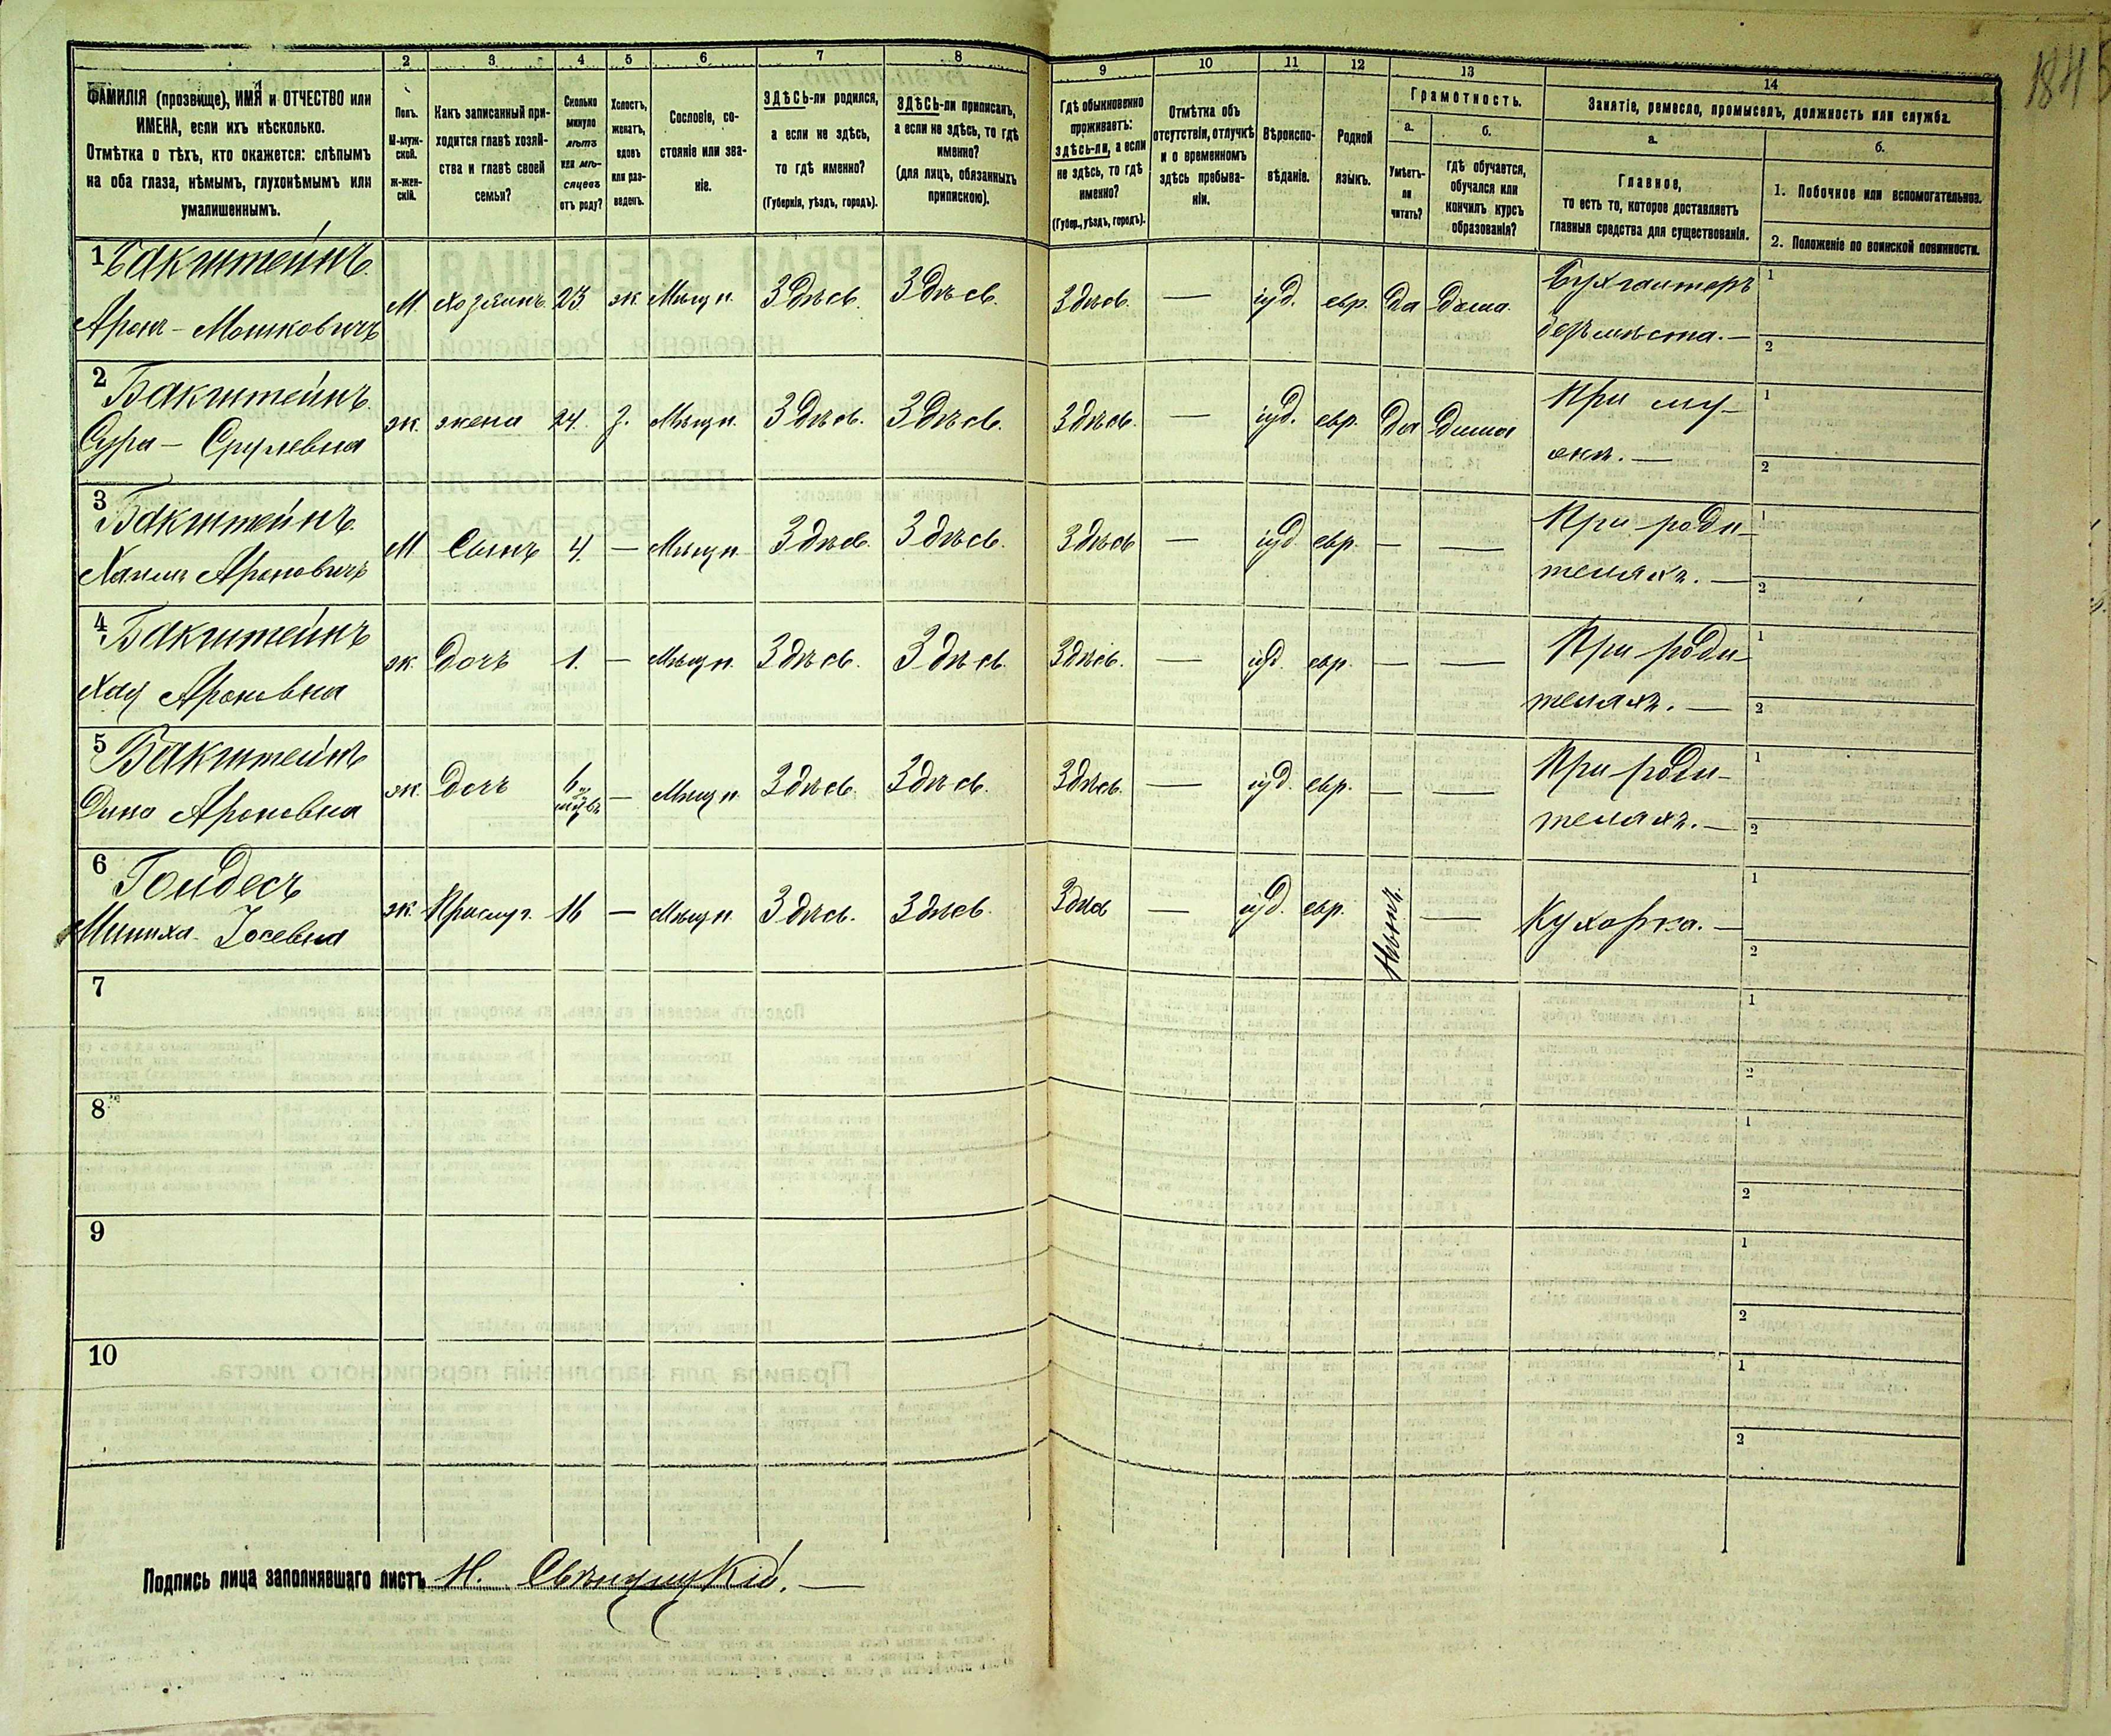 184
1 2 3 4 5 6 7 8 9 10 11 12 13 14
ФАМИЛІЯ (прозвище), ИМЯ и ОТЧЕСТВО или
ИМЕНА, если ихъ нѣсколько.
Отмѣтка о тѣхъ, кто окажется: слѣпымъ
на оба глаза, нѣмымъ, глухонѣмымъ или
умалишеннымъ.
Полъ.
М-муж-
ской.
Ж-жен-
скій.
Какъ записанный при-
ходится главѣ хозяй-
ства и главѣ своей
семьи?
Сколько
минуло
лѣтъ
или мѣ-
сяцевъ
отъ роду?
Холостъ,
женатъ,
вдовъ
или раз-
веденъ.
Сословіе, со-
стояніе или зва-
ніе.
ЗДѢСЬ-ли родился,
а если не здѣсь,
то гдѣ именно?
(Губернія, уѣздъ, городъ).
ЗДѢСЬ-ли приписанъ,
а если не здѣсь, то гдѣ
именно?
(для лицъ, обязанныхъ
припискою).
Гдѣ обыкновенно
проживаетъ:
здѣсь-ли, а если
не здѣсь, то гдѣ
именно?
(Губер., уѣздъ, городъ).
Отмѣтка объ
отсутствіи, отлучкѣ
и о временномъ
здѣсь пребыва-
ніи.
Вѣроиспо-
вѣданіе.
Родной
языкъ.
Грамотность.
а.
Умѣетъ-
ли
читать?
б.
гдѣ обучается,
обучался или
кончилъ курсъ
образованія?
Занятіе, ремесло, промыселъ, должность или служба.
а.
Главное,
то есть то, которое доставляетъ
главныя средства для существованія.
б.
1. Побочное или вспомогательное.
2. Положеніе по воинской повинности.
1 Бакштейнъ
Аронъ - Мошковичъ М. хозяинъ 23 ж. Мѣщ н. Здѣсь. Здѣсь. Здѣсь. — іуд. евр. Да Дома. Бухгалтеръ
безъ мѣста. —
1
2
2 Бакштейнъ
Сура - Срулевна ж. жена 24 з. Мѣщн. Здѣсь. Здѣсь. Здѣсь. — іуд. евр. Да Дома При му-
жѣ. —
1
2
3 Бакштейнъ
Хаимъ Ароновичъ М. Сынъ 4. — Мѣщн. Здѣсь. Здѣсь. Здѣсь — іуд евр. — — При роди-
теляхъ. —
1
2
4 Бакштейнъ
Хая Ароновна ж. Дочь 1. — Мѣщн. Здѣсь. Здѣсь. Здѣсь. — іуд. евр. — — При роди-
теляхъ. —
1
2
5 Бакштейнъ
Ароновна ж. Дочь 6 — Мѣщн. Здѣсь. Здѣсь. Здѣсь. — іуд. евр. — — При роди-
теляхъ. —
1
2
6 Гольдесъ
Іосевна ж. Прислуг. 16 — Мѣщн. Здѣсь. Здѣсь. Здѣсь — іуд. евр. Нѣтъ. — Кухарка. —
1
2
7
1
2
8
1
2
9
1
2
10
1
2
Подпись лица заполнявшаго листъ